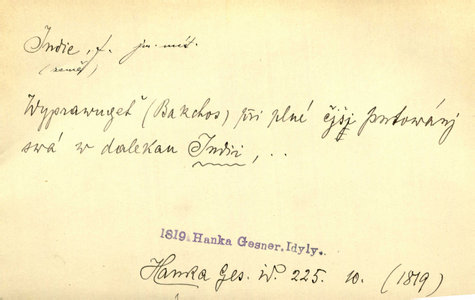 Indie, f. jm. míst.
(země)
Wyprawuget' (Bakchos) při plné čjšj putowánj
swá w dalekau Indii, ..
1819 Hanka Gesner, Idyly.
Hanka Ges. W. 225. 10. (1819)